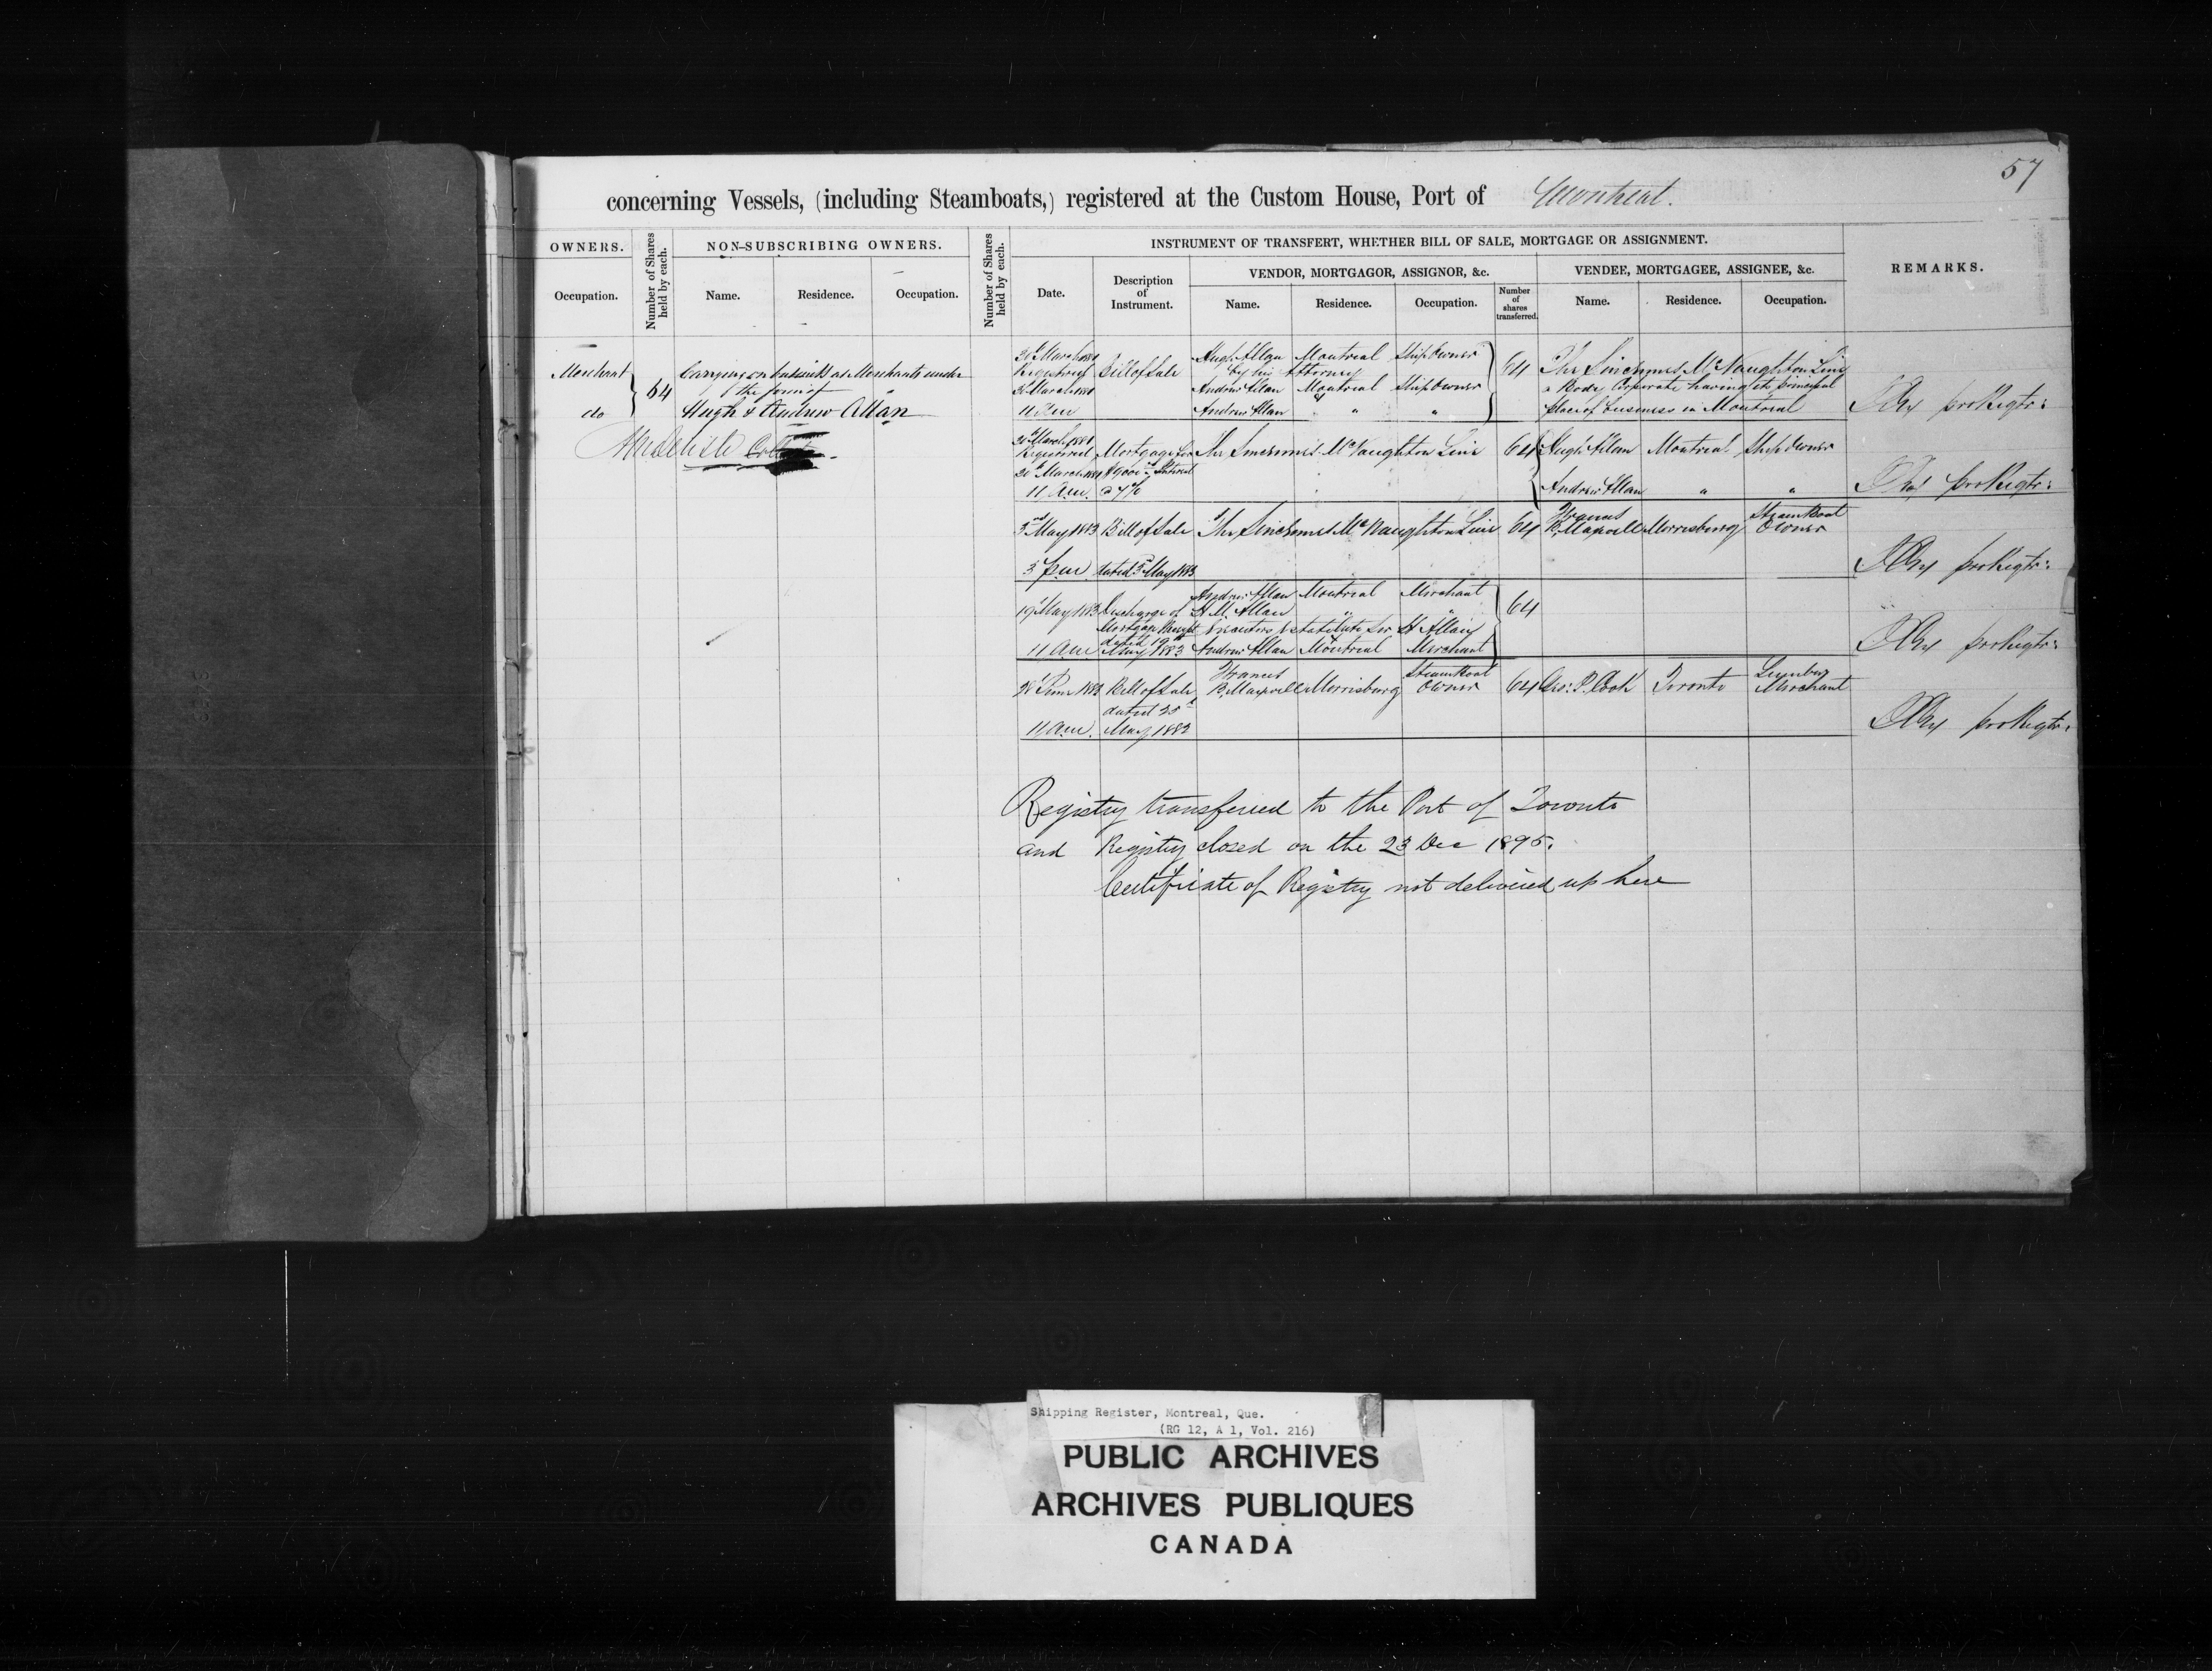 57
concerning Vessels, (including Steamboats,) registered at the Custom House, Port of Montreal.
OWNERS.
Number of Shares held by each.
NON-SUBSCRIBING OWNERS.
Number of Shares held by each.
INSTRUMENT OF TRANSFERT, WHETHER BILL OF SALE, MORTGAGE OR ASSIGNMENT.
REMARKS.
VENDOR, MORTGAGOR, ASSIGNOR, &c.
VENDEE, MORTGAGEE, ASSIGNEE, &c.
Occupation. Name. Residence. Occupation. Date. Description of Instrument. Name. Residence. Occupation. Number of shares transferred. Name. Residence. Occupation.
Merchant
do
64
Carrying on business as Merchants under
the firm of
Hugh & Andrew Allan
March 1881 Bill of Sale Hugh Allan Montreal Ship Owner 64 The Sincennes McNaughton Line
Registered by his Attorney a Body Corporate having its principal
March 1881 Andrew Allan Montreal Ship Owner place of business in Montreal
11 a.m. Andrew Allan " " pro Regtr:
March 1881 Mortgage for The Sincennes McNaughton Line 64 Hugh Allan Montreal Ship Owner
Registered $9000 Interest
March 1881 @ 7%
11 a.m. Andrew Allan " " pro Regtr:
3rd May 1883 Bill of Sale The Sincennes McNaughton Line 64 Francis B. Maxwell Morrisburg Steam Boat Owner
3 p.m. dated 3rd May 1883 pro Regtr:
19 May 1883 Discharge of Andrew Allan Montreal Merchant 64
Mortgage Receipt H. M. Allan " "
dated 19th Executors H Allan
11 a.m. May 1883 Andrew Allan Montreal Merchant pro Regtr:
28 June 1883 Bill of Sale Francis B. Maxwell Morrisburg Steam Boat Owner 64 Geo: P. Cook Toronto Lumber Merchant
dated 25
11 a.m. May 1883 pro Regtr:
Registry transferred to the Port of Toronto
and Registry closed on the 23 Dec 1895.
Certificate of Registry not delivered up here
Shipping Register, Montreal, Que.
(RG 12, A 1, Vol. 216)
PUBLIC ARCHIVES
ARCHIVES PUBLIQUES
CANADA